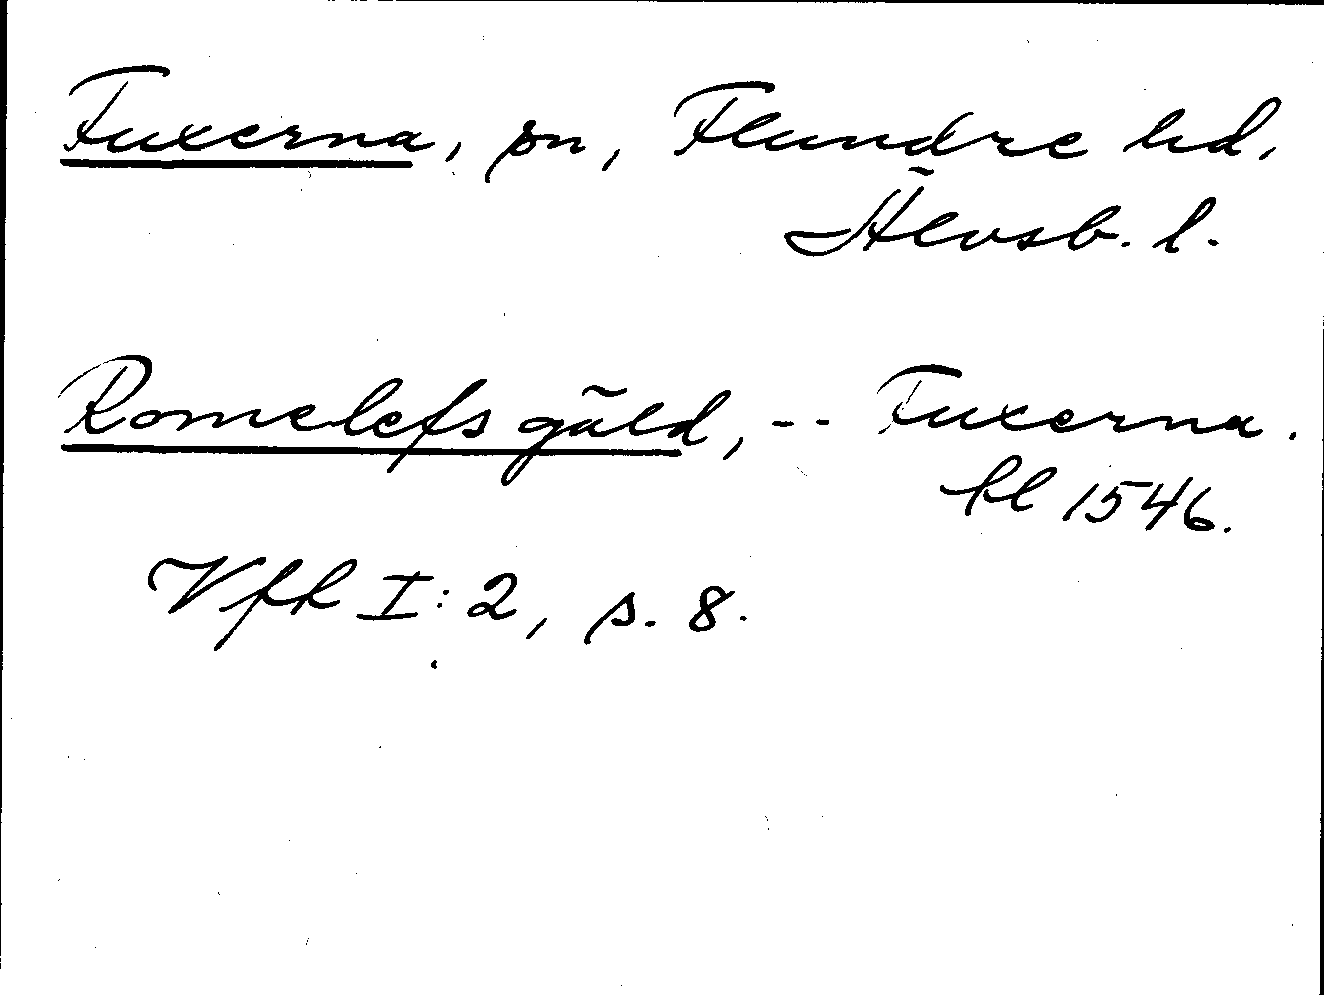 Fuxerna, sn, Flundre hd,
Älvsb. l.
Romelefs gäld, -- Fuxerna.
hl 1546.
VfR I:2, s. 8.